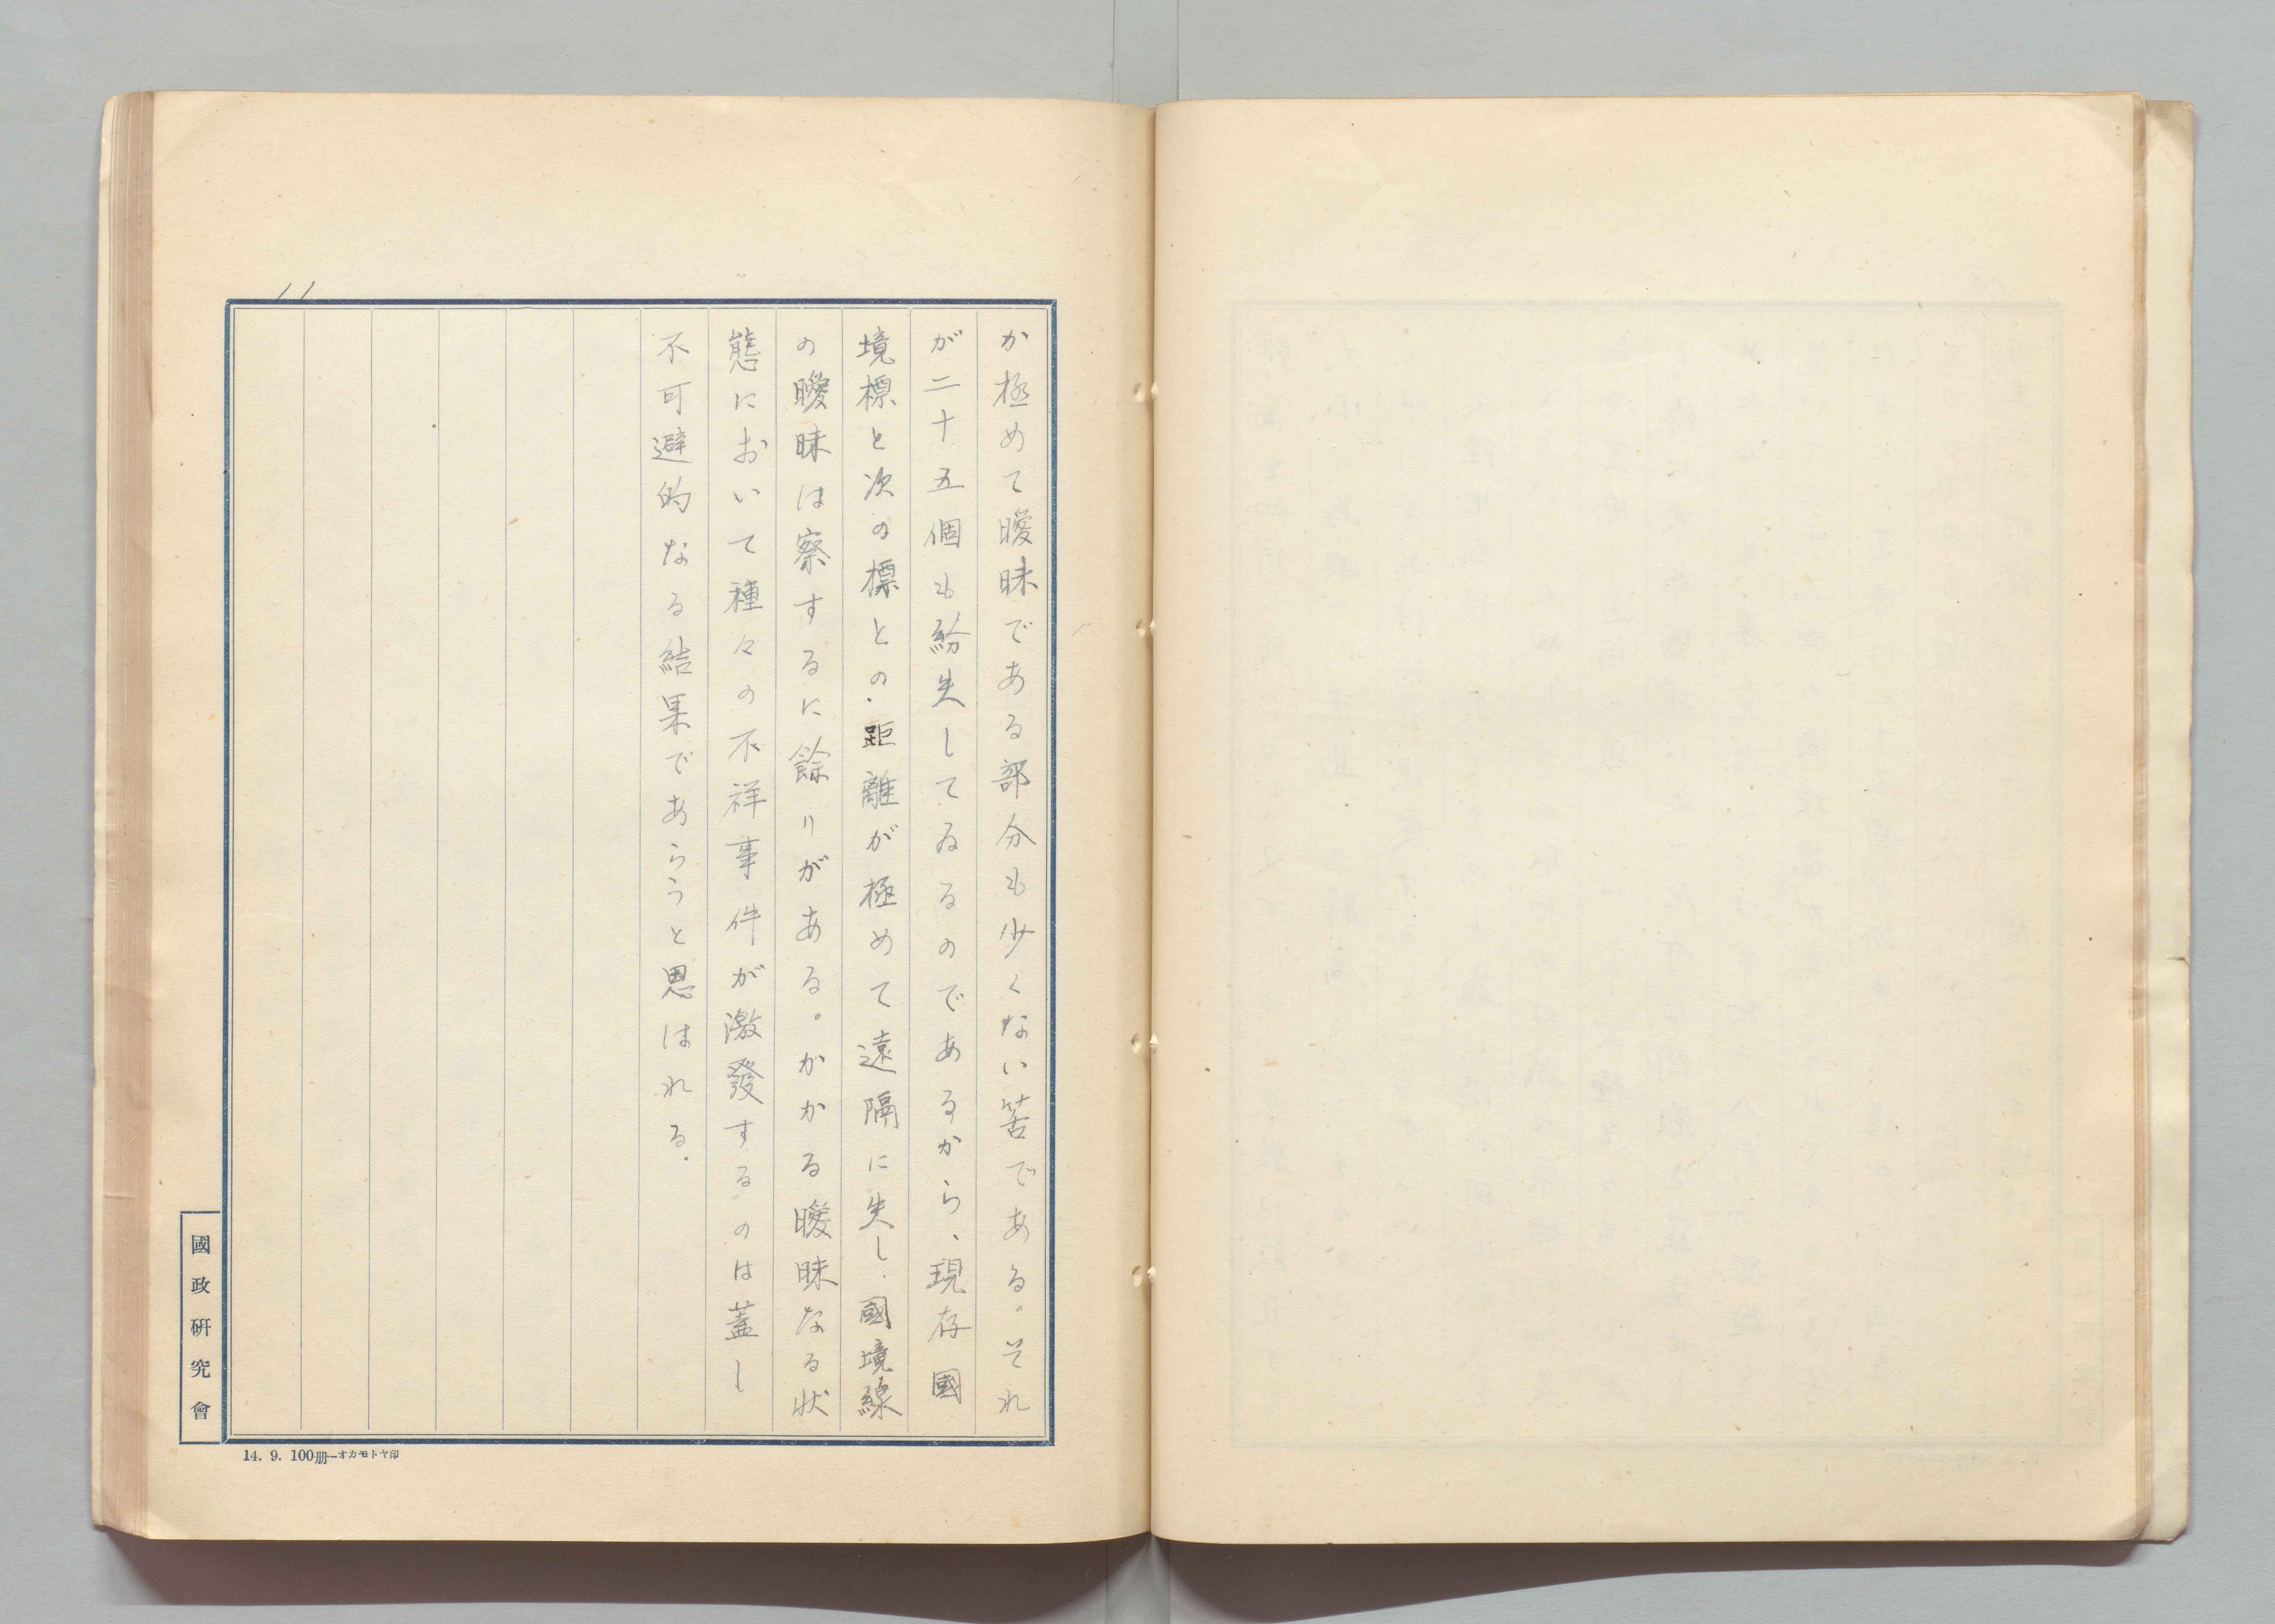 か極めて曖昧である部分も少くない筈である。それ
が二十五個も紛失してゐるのであるから、現存國
境標と次の標との距離が極めて遠隔に失し、國境線
の曖昧は察するに餘りがある。かかる曖昧なる状
態において種々の不祥事件が激發するのは蓋し
不可避的なる結果であらうと思はれる。
11
國政研究會
14. 9. 100册—オカモトヤ印